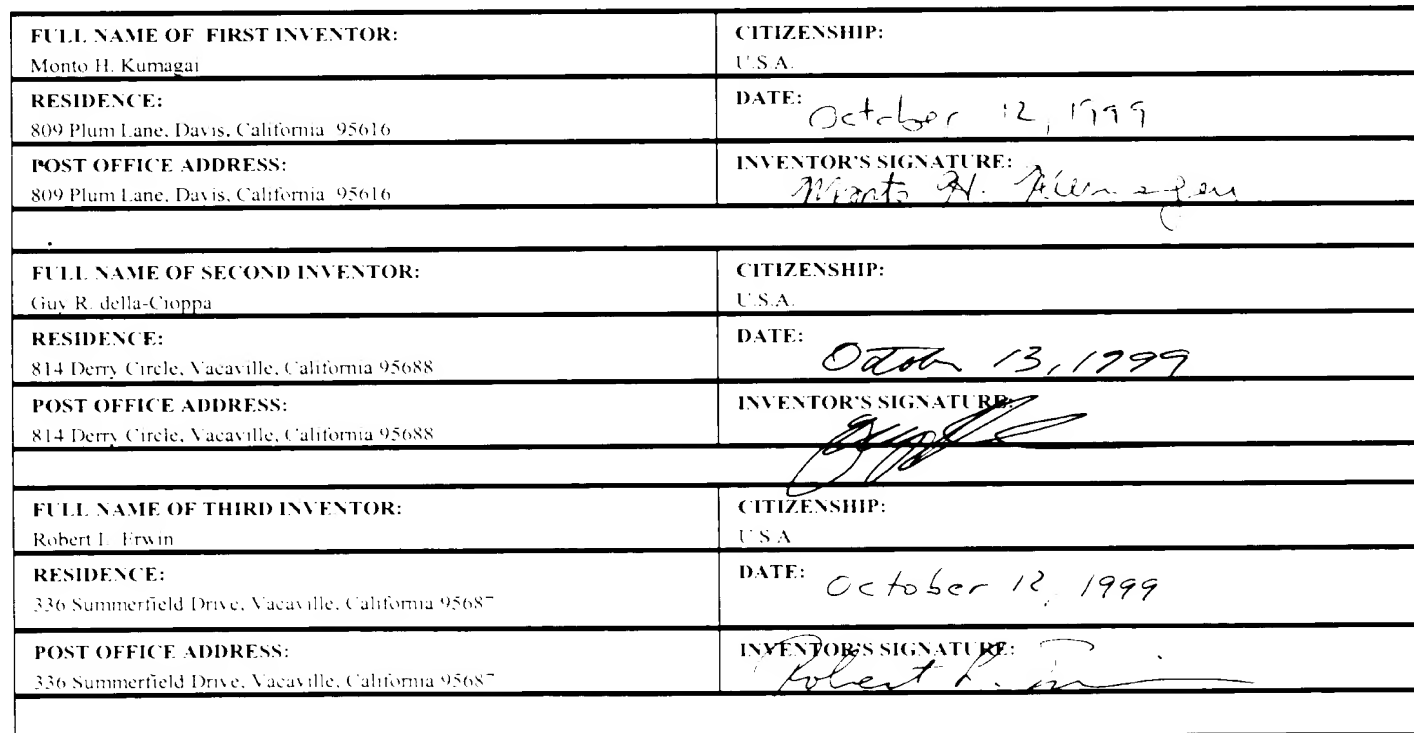 FULL NAME OF FIRST INVENTOR:
Monto H. Kumagai
CITIZENSHIP:
U.S.A.
RESIDENCE:
809 Plum Lane, Davis, California 95616
DATE: October 12, 1999
POST OFFICE ADDRESS:
809 Plum Lane, Davis, California 95616
INVENTOR'S SIGNATURE:
Monto H. Kumagai
FULL NAME OF SECOND INVENTOR:
Guy R. della-Cioppa
CITIZENSHIP:
U.S.A.
RESIDENCE:
814 Derry Circle, Vacaville, California 95688
DATE: October 13, 1999
POST OFFICE ADDRESS:
814 Derry Circle, Vacaville, California 95688
INVENTOR'S SIGNATURE:
FULL NAME OF THIRD INVENTOR:
Robert L. Erwin
CITIZENSHIP:
U.S.A
RESIDENCE:
336 Summerfield Drive, Vacaville, California 95687
DATE: October 12, 1999
POST OFFICE ADDRESS:
336 Summerfield Drive, Vacaville, California 95687
INVENTOR'S SIGNATURE:
Robert L.